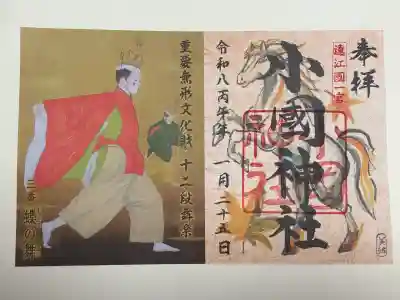 奉拝
遠江國一宮
小國神社
令和八丙午年 一月二十五日
重要無形文化財 十二段舞楽
二番